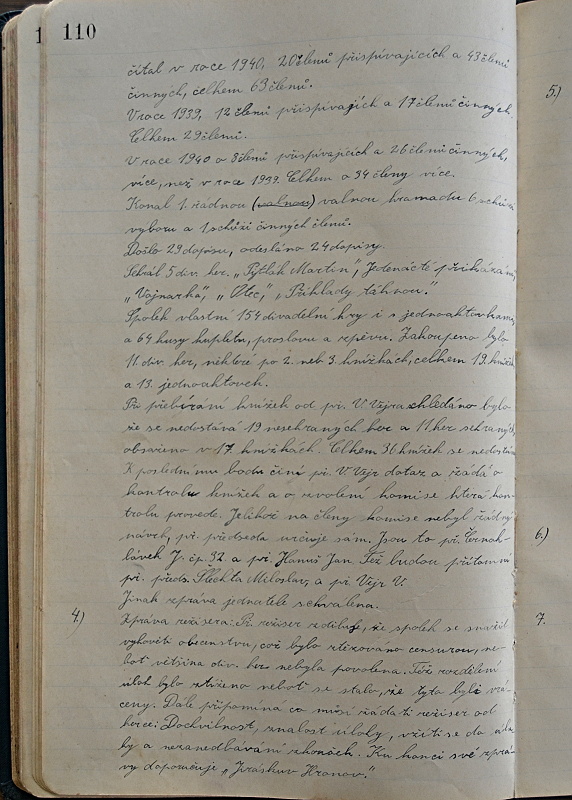 110
čítal v roce 1940, 20 členů přispívajících a 43 členů
činných, celkem 63 členů.
V roce 1939, 12 členů přispívajích a 17 členů činných.
Celkem 29 členů.
V roce 1940 o 8 členů přispívajících a 26 členů činných,
více, než v roce 1939. Celkem o 34 členy více.
Konal 1. řádnou (valnou) valnou hromadu 6 schůzí
výboru a 1 schůzi činných členů.
Došlo 29 dopisu, odesláno 24 dopisy.
Sehrál 5 div. her. „Pytlák Martin", Jedenácté přikázání,
„Vojnarka", „Otec", „Příklady táhnou."
Spolek vlastní 154 divadelní hry i s jednoaktovkami,
a 64 kusy kupletu, proslovu a zpěvu. Zakoupeno bylo
11. div. her, některé po 2. neb 3. knížkách, celkem 19. knížek
a 13. jednoaktovek.
Při přebírání knížek od př. V. Vejra shledáno bylo
že se nedostává 19 nesehraných her a 11 her sehraných
obsaženo v 17. knížkách. Celkem 36 knížek se nedostává
K poslednímu bodu činí př. V. Vejr dotaz a žádá o
kontrolu knížek a o zvolení komise která kon-
trolu provede. Jelikož na členy komise nebyl řádný
návrh, př. předseda určuje sám. Jsou to př. Černoh-
lávek J. čp. 92 a př. Hanuš Jan. Též budou přítomni
př. předs. Šlechta Miloslav, a př. Vejr V.
Jinak zpráva jednatele schválena.
4.) Zpráva režisera: Př. režiser sděluje, že spolek se snažil
vyhověti obecenstvu, což bylo stěžováno censurou, ne-
boť většina div. her nebyla povolena. Též rozdělení
úloh bylo stíženo neboť se stalo, že tyto byli vrá-
ceny. Dále připomíná co musí žádati režiser od
herce: Dochvilnost, znalost úlohy, vžíti se do úlo-
hy a nezanedbávání zkoušek. Ku konci své zprá-
vy doporučuje „Jiráskuv Hronov."
5.)
6.)
7.